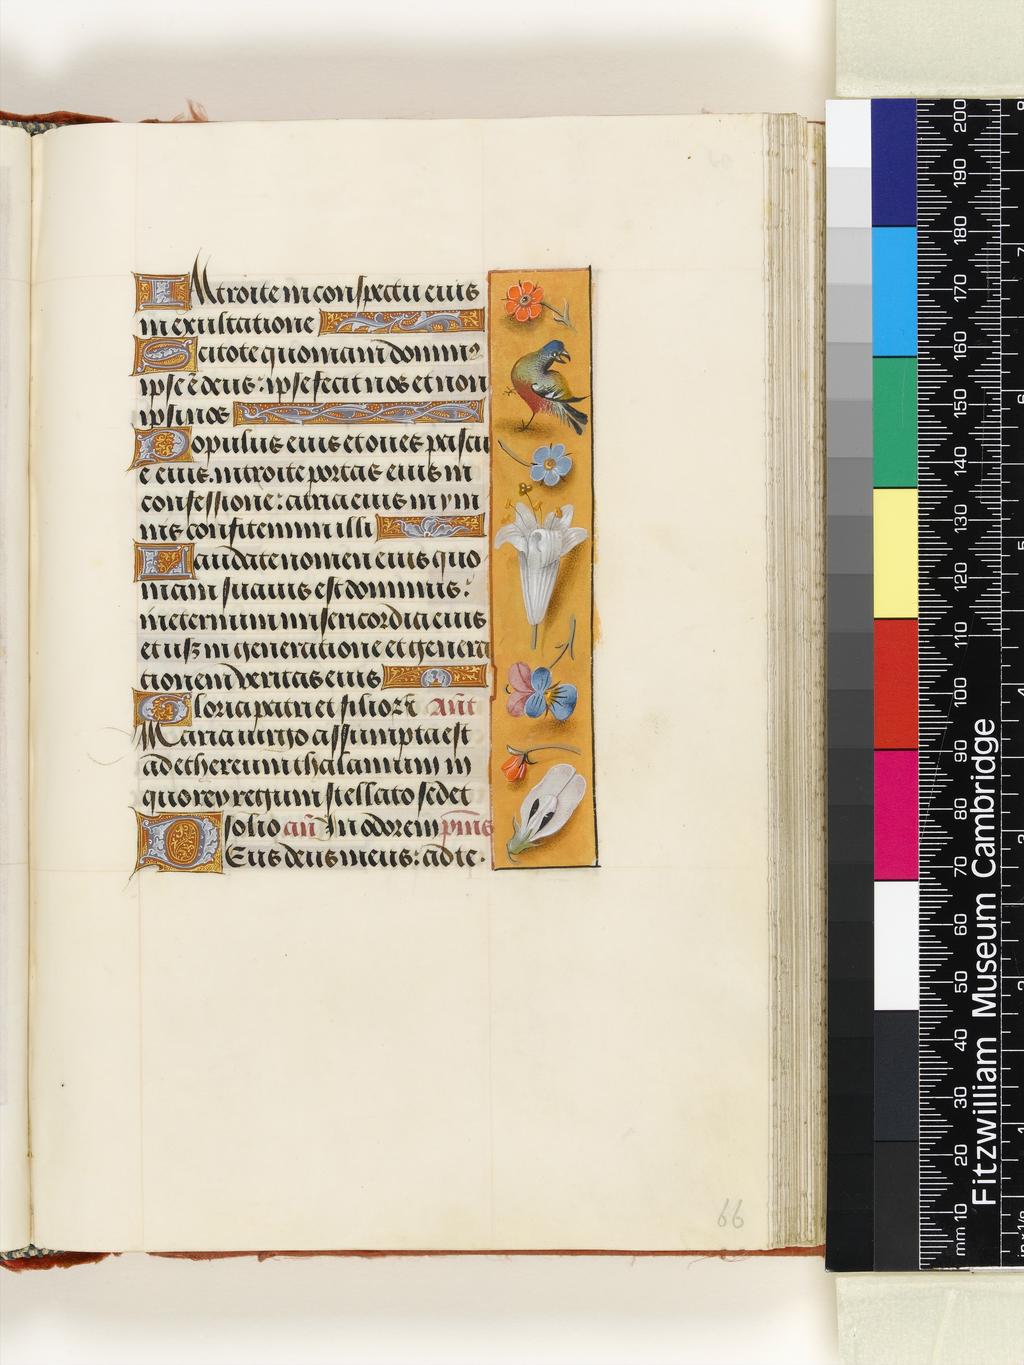 Introite in conspectu eius
in exultatione
Scitote quoniam domin9
ipse ē deus: ipse fecit nos et non
ipsi nos
Populus eius et oues pascu
e eius. introite portas eius in
confessione: atria eius in ym
nis confitemini illi
Laudate nomen eius quo
niam suauis est dominus:
in eternum misericordia eius
et usq3 in generatione et genera
tionem veritas eius
Gloria patri et filio Añt
Maria uirgo assumpta est
ad ethereum thalamum in
quo rex regum stellato sedet
solio añ In odorem p̄ms
Deus deus meus: ad te
66
Fitzwilliam Museum Cambridge
mm 10 20 30 40 50 60 70 80 90 100 110 120 130 140 150 160 170 180 190 200